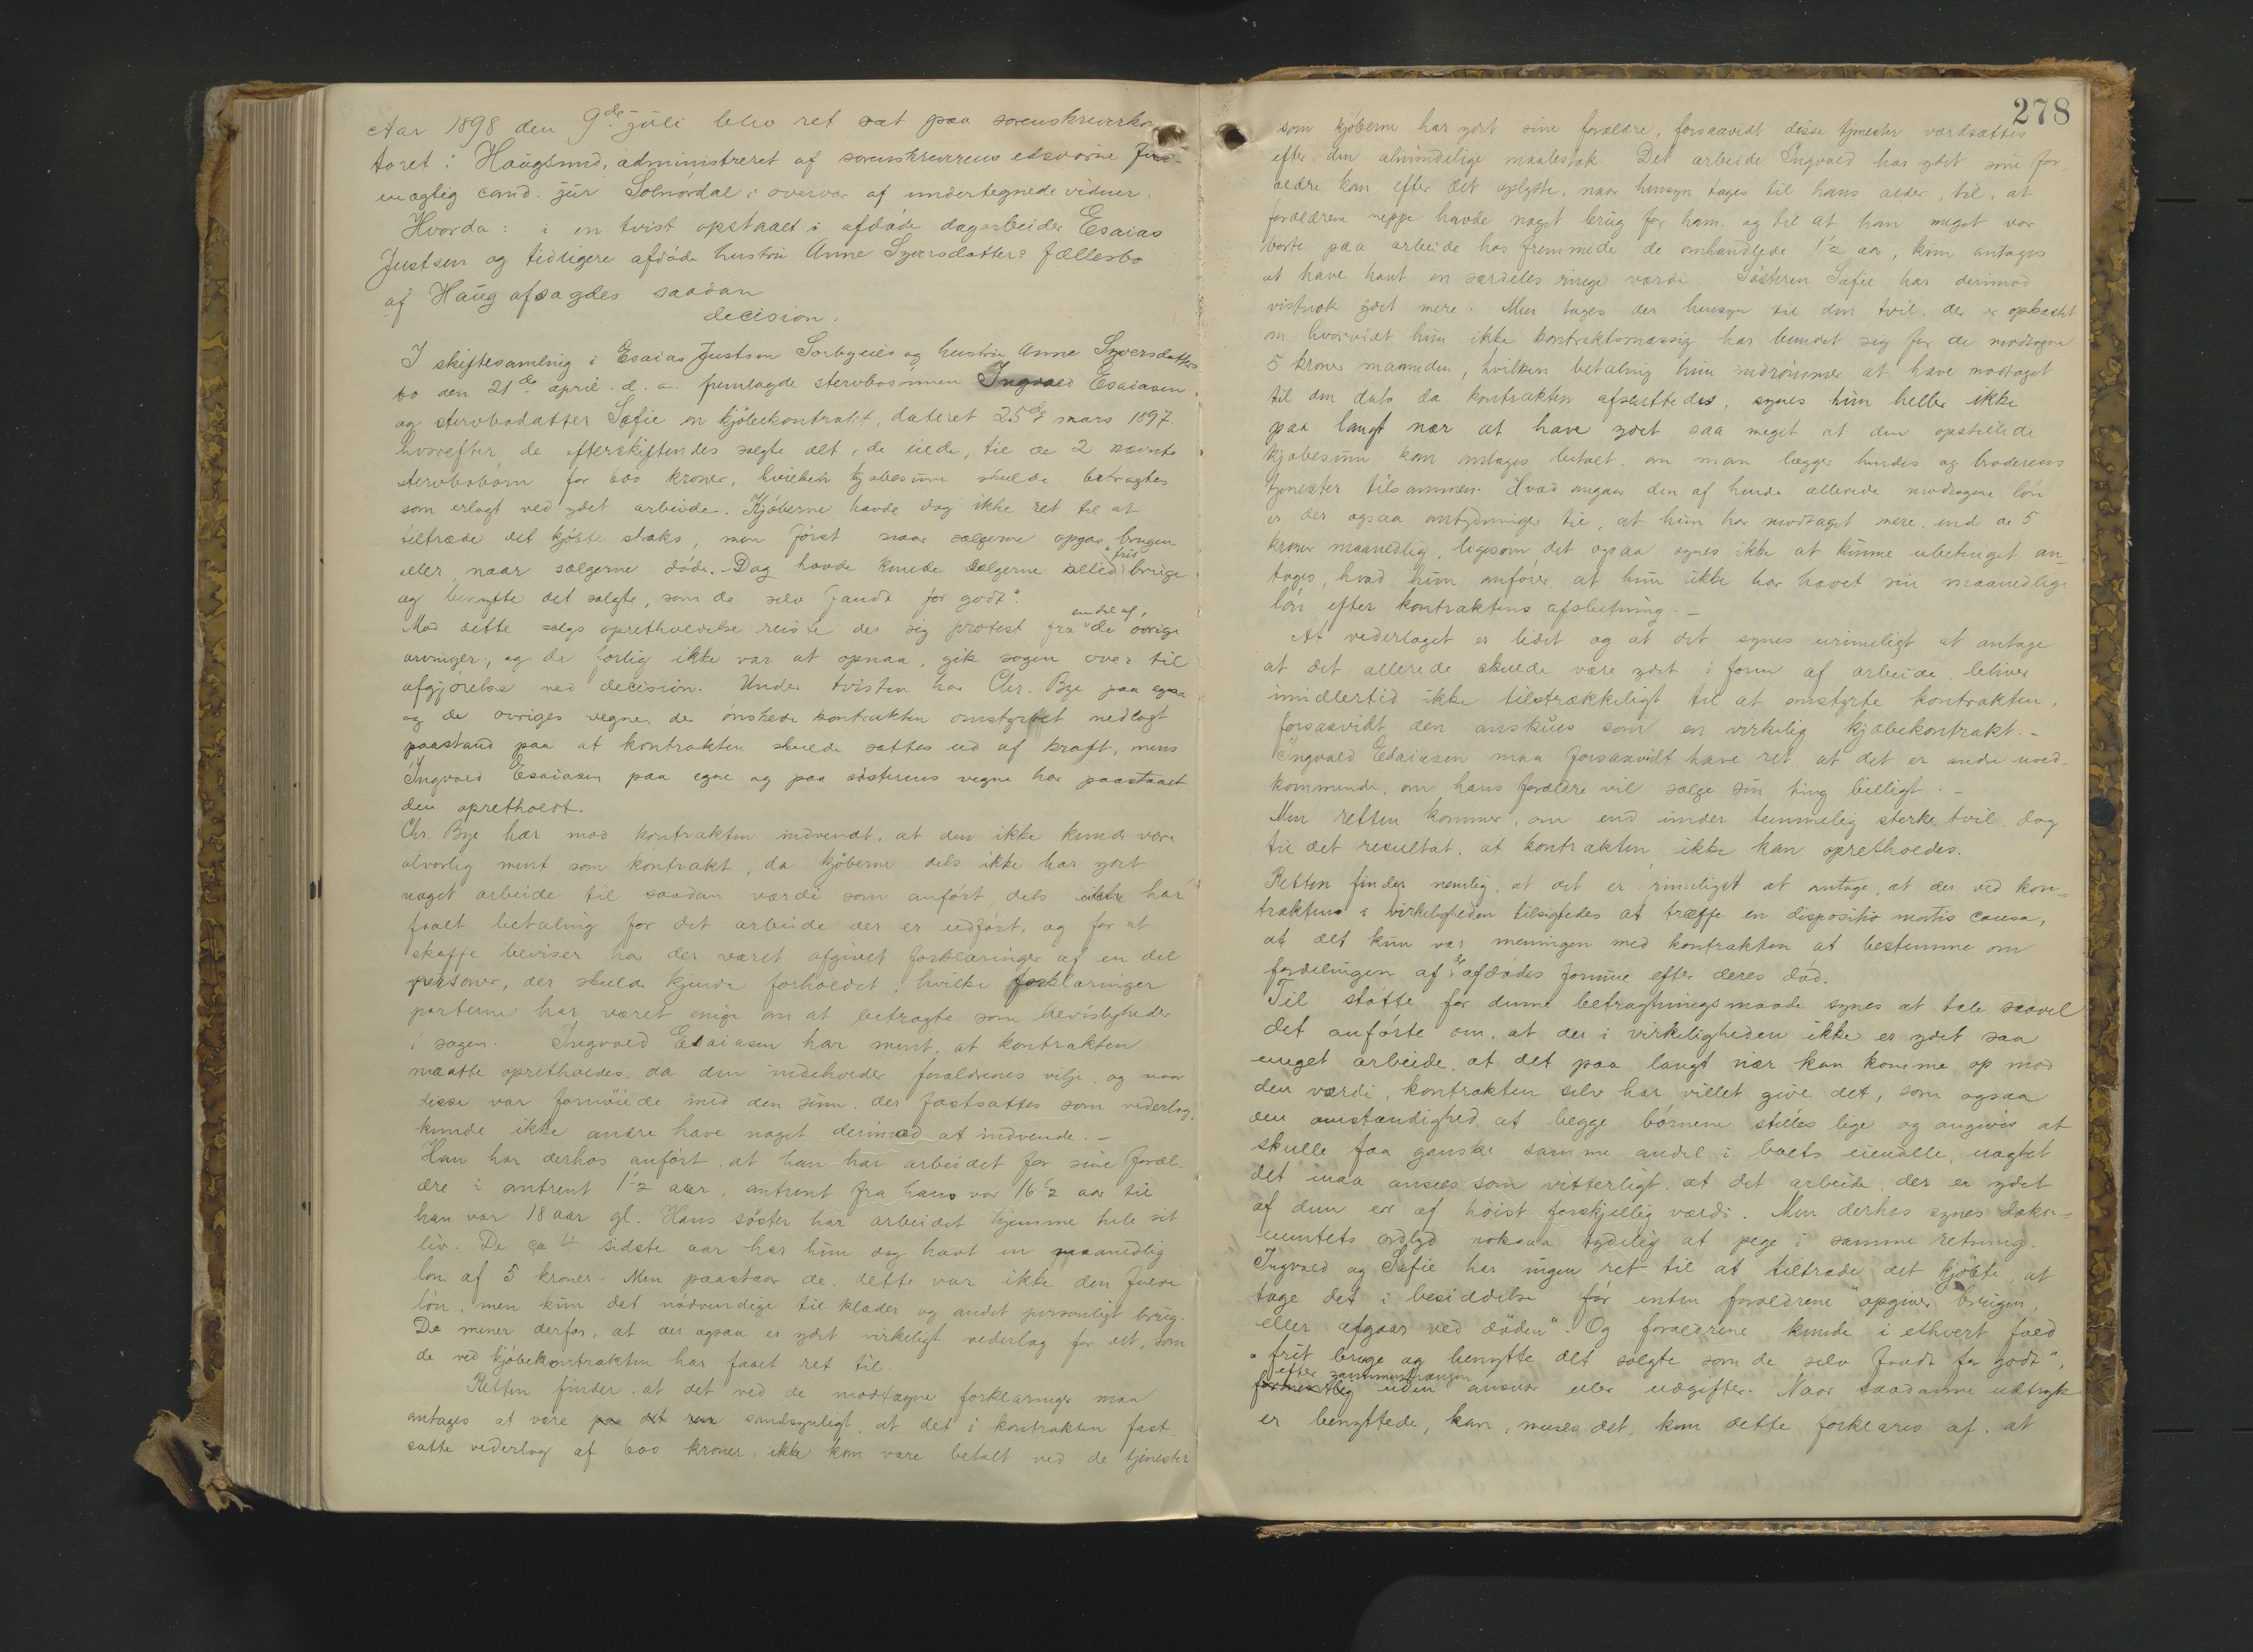 Aar 1898 den 9de juli blev ret sat paa sorenskriverkon
toret i Haugsund, administreret af sorenskriverens edsvorne fuld
mægtig cand. jur Solnördal i overvær af undertegnede vidner.
Hvorda: i en tvist opstaaet i afdöde dagarbeider Esaias
Justsen og tidligere afdöde hustru Anne Syversdatters fællesbo
af Haug afsagdes saadan
decision.
I skiftesamling i Esaias Justsen Sorbyeies og hustru Anne Syversdatters
bo den 21de april d. a. fremlagde stervbosönnen Ingvald Esaiasen
og stervbodatter Sofie en kjöbekontrakt, dateret 25de mars 1897.
hvorefter de efterskiftendes solgte alt, de eiede, til de 2 nævnte
stervbobörn for 600 kroner, hvilken kjöbesum skulde betragtes
som erlagt ved ydet arbeide. Kjöberne havde dog ikke ret til at
tiltræde det kjöbte straks, men först naar sælgerne opgav brugen
eller naar sælgerne döde. Dog havde kunde sælgerne altid "frit bruge
og benytte det solgte, som de selv fandt for godt".
Mod dette salgs opretholdelse reiste der sig protest fra en del af de övrige
arvinger, og da forlig ikke var at opnaa, gik sagen over til
afgjörelse ved decision. Under tvisten har Chr. Bye paa egne
og de övriges vegne, der önskede kontrakten omstyrtet nedlagt
paastand paa at kontrakten skulde sættes ud af kraft, mens
Ingvald Esaiasen paa egne og paa sösterens vegne har paastaaet
den opretholdt.
Chr. Bye har mod kontrakten indvendt, at den ikke kunde være
alvorlig ment som kontrakt, da kjöberne dels ikke har ydet
noget arbeide til saadan værdi som anfört, dels ikke har
faaet betaling for det arbeide der er udfört, og for at
skaffe beviser har der været afgivet forklaringer af en del
personer, der skulde kjende forholdet, hvilke forklaringer
parterne har været enige om at betragte som bevisligheder
i sagen. Ingvald Esaiasen har ment, at kontrakten
maatte opretholdes, da den indeholder forældrenes vilje, og naar
disse var fornöiede med den sum, der fastsattes som vederlag,
kunde ikke andre have noget derimod at indvende. –
Han har derhos anfört, at han har arbeidet for sine foræl-
dre i omtrent 1½ aar, omtrent fra han var 16½ aar til
han var 18 aar gl. Hans söster har arbeidet hjemme hele sit
liv. De ca 4 sidste aar har hun dog havt en maanedlig
lön af 5 kroner. Men paastaar de, dette var ikke den fulde
lön, men kun det nödvendige til klæder og andet personligt brug.
De mener derfor, at der ogsaa er ydet virkeligt vederlag for det, som
de ved kjöbekontrakten har faaet ret til.
Retten finder, at det ved de modtagne forklaringer maa
antages at være sandsynligt, at det i kontrakten fast
satte vederlag af 600 kroner ikke kan være betalt ved de tjenester
278
som kjöberne har ydet sine forældre, forsaavidt disse tjenester værdsættes
efter den almindelige maalestok. Det arbeide Ingvald har ydet sine for
ældre kan efter det oplyste, naar hensyn tages til hans alder, til, at
forældrene neppe havde noget brug for ham, og til at han meget var
borte paa arbeide hos fremmede de omhandlede 1½ aar, kun antages
at have havt en særdeles ringe værdi. Sösteren Sofie har derimod
vistnok ydet mere. Men tages der hensyn til den tvil, der er opkastet
om hvorvidt hun ikke kontraktsmæssig har bundet sig for de modtagne
5 kroner maaneden, hvilken betaling hun indrömmer at have modtaget
til den dato da kontrakten afsluttedes, synes hun heller ikke
paa langt nær at have ydet saa meget at den opstillede
kjöbesum kan antages betalt, om man lægger hendes og broderens
tjenester tilsammen. Hvad angaar den af hende allerede modtagne lön
er der ogsaa antydninger til, at hun har modtaget mere end de 5
kroner maanedlig, ligesom det ogsaa synes ikke at kunne ubetinget an-
tages, hvad hun anförer, at hun ikke har havet sin maanedlige
lön efter kontraktens afslutning. –
At vederlaget er lidet og at det synes urimeligt at antage
at det allerede skulde være ydet i form af arbeide, bliver
imidlertid ikke tilstrækkeligt til at omstyrte kontrakten,
forsaavidt den anskues som en virkelig kjöbekontrakt. –
Ingvald Esaiasen maa forsaavidt have ret, at det er andre uved-
kommende, om hans forældre vil sælge sin ting billigt. –
Men retten kommer, om end under temmelig sterke tvil, dog
til det resultat, at kontrakten ikke kan opretholdes.
Retten finder nemlig, at det er rimeligst at antage, at der ved kon-
trakten i virkeligheden tilsigtedes at træffe en dispositio mortis causa,
at det kun var meningen med kontrakten at bestemme om
fordelingen af de afdödes formue efter deres död.
Til stötte for denne betragtningsmaade synes at tale saavel
det anförte om, at der i virkeligheden ikke er ydet saa
meget arbeide, at det paa langt nær kan komme op mod
den værdi, kontrakten selv har villet give det, som ogsaa
den omstændighed, at begge börnene stilles lige og angives at
skulle faa ganske samme andel i boets eiendele, uagtet
det maa ansees som vitterligt, at det arbeide, der er ydet
af dem er af höist forskjellig værdi. Men derhos synes doku-
mentets ordlyd noksaa tydelig at pege i samme retning.
Ingvald og Sofie har ingen ret til at tiltræde det kjöbte, at
tage det i besiddelse för enten forældrene "opgiver brugen,
eller afgaar ved döden". Og forældrene kunde i ethvert fald
"frit bruge og benytte det solgte som de selv fandt for godt",
efter sammenhængen uden ansvar eller udgifter. Naar saadanne udtryk
er benyttede, kan, menes det, kun dette forklares af, at